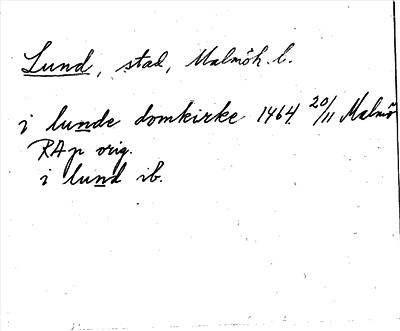 Lund, stad, Malmöh. l.
i lunde domkirke 1464 20/11 Malmö
RA p orig.
i lund ib.